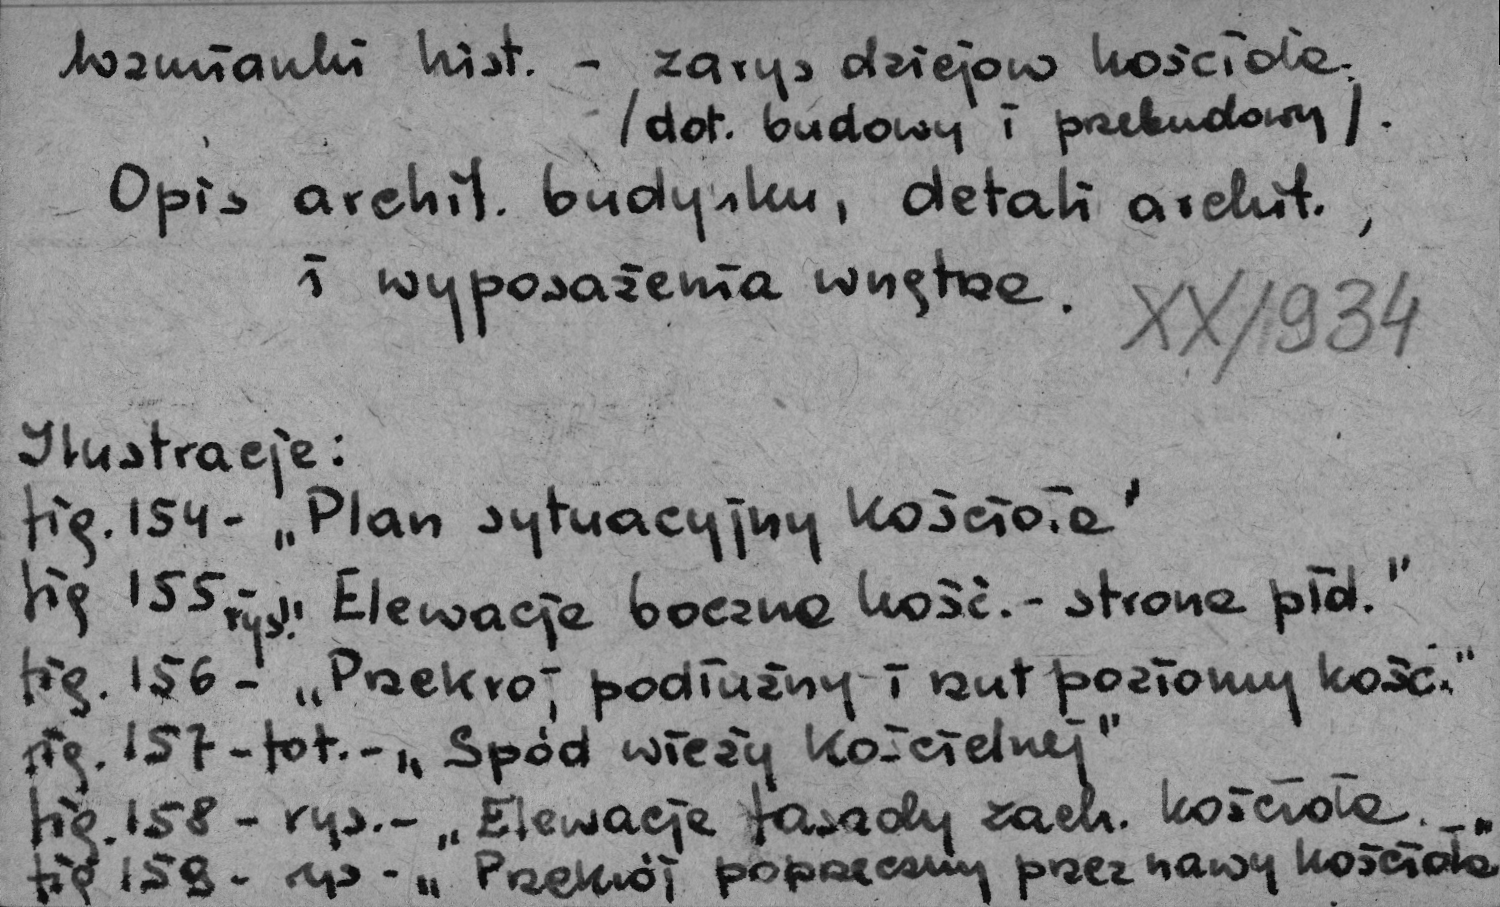 Wzmianki hist. - zarys dziejów kościoła.
/dot. budowy i przebudowy/.
Opis archit. budynku, detali archit.,
i wyposażenia wnętrza.
XX/1934
Ilustracje:
fig. 154 - „Plan sytuacyjny kościoła"
fig 155 rys. „Elewacja boczna kość. - strona płd."
fig. 156 - „Przekrój podłużny i rzut poziomy kość."
fig. 157 - fot. - „Spód wieży kościelnej"
fig. 158 - rys. - „Elewacja fasady zach. kościoła.
fig 159 - rys - „Przekrój poprzeczny przez nawy kościoła"